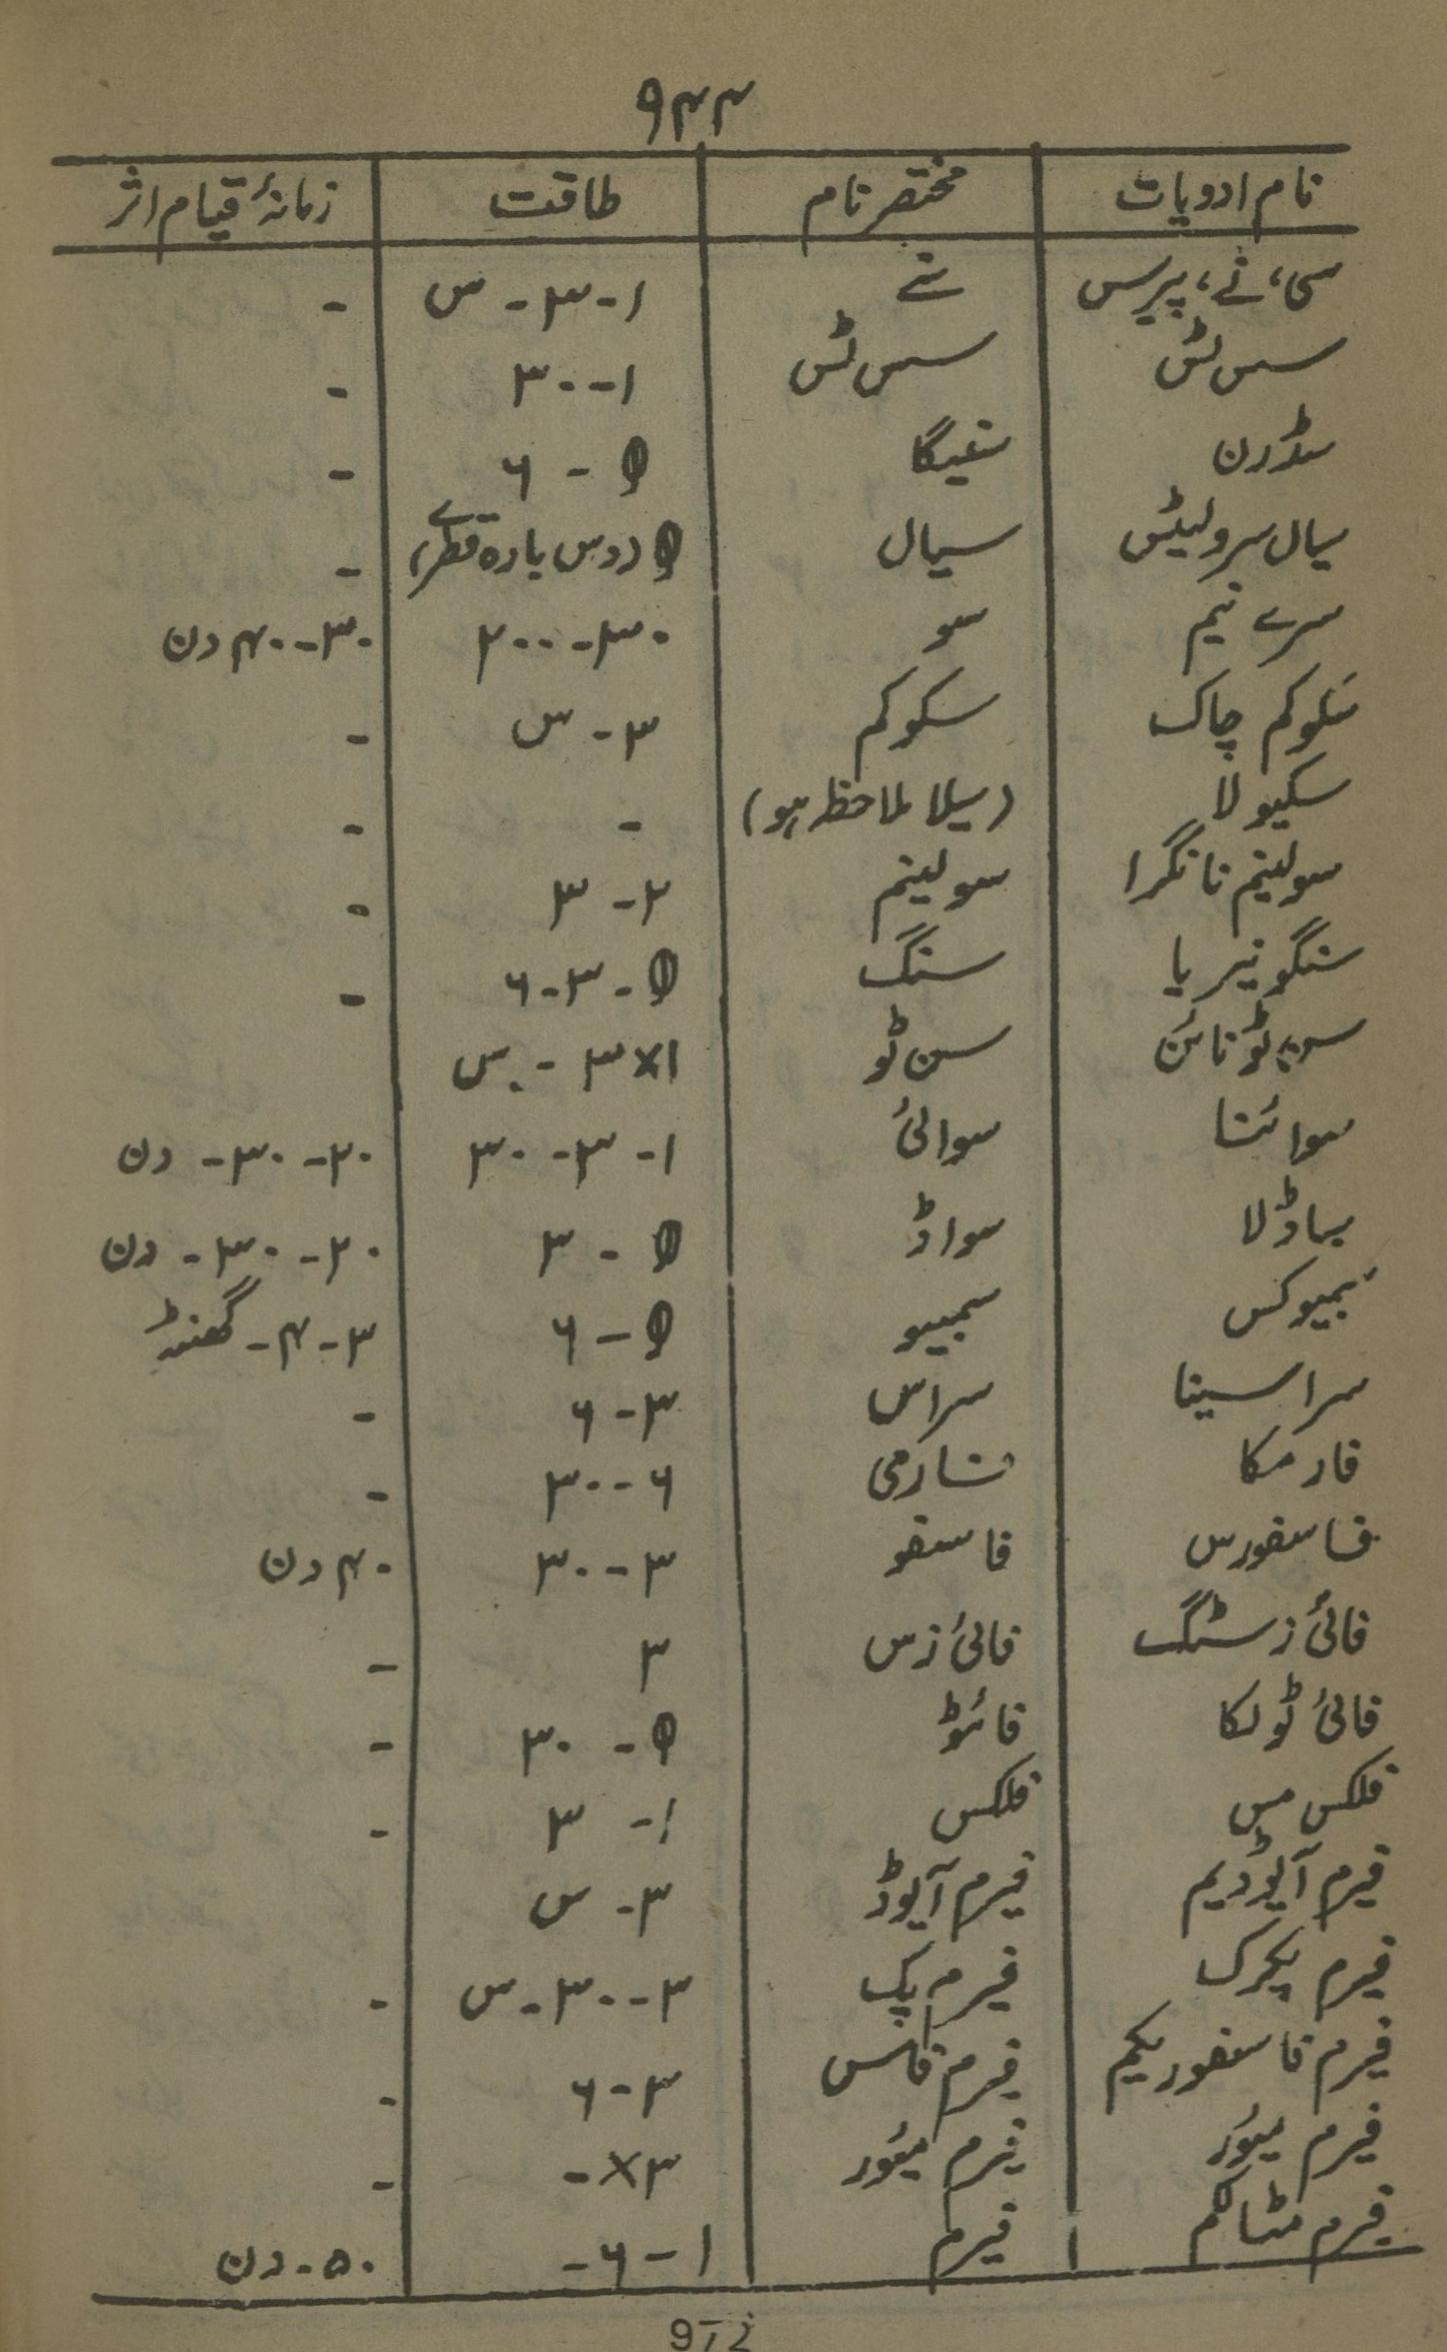 ۹۴۴
نام ادویات مختصر نام طاقت زمانۂ قیام اثر
سی، نے، پیرس نے ۱-۳- س -
سس ٹس سس ٹس ۱-۳۰ -
سڈرن سنیگا θ - ۶ -
سیال سرولیٹس سیال θ (دس بارہ قطرے) -
سرے نیم سو ۳۰-۲۰۰ ۳۰-۴۰ دن
سکوکم چاک سکوکم ۳- س -
سکیولا (سیلا ملاحظہ ہو) - -
سولینم نائگرا سولینم ۲-۳ -
سنگونیریا سنگ θ-۳-۶ -
سن ٹونائن سن ٹو ۱×۳ - س
سوائنا سوائی ۱-۳-۳۰ ۲۰-۳۰- دن
سباڈلا سواڈ θ - ۳ ۲۰-۳۰- دن
سمبیوکس سمبیو θ-۶ ۳-۴- گھنٹہ
سراسینا سراس ۳-۶ -
فارمکا فارمی ۶-۳۰ -
فاسفورس فاسفو ۳-۳۰ ۴۰ دن
فائی زسٹگ فائی زس ۳ -
فائی ٹولکا فائٹو θ - ۳۰ -
فلکس مس فلکس ۱- ۳ -
فیرم آیوڈیم فیرم آیوڈ ۳- س
فیرم پکرک فیرم پک ۳-۳۰-س -
فیرم فاسفوریکم فیرم فاس ۳-۶ -
فیرم میور فیرم میور ۳×- -
فیرم مٹالکم فیرم ۱-۶- ۵۰- دن
972